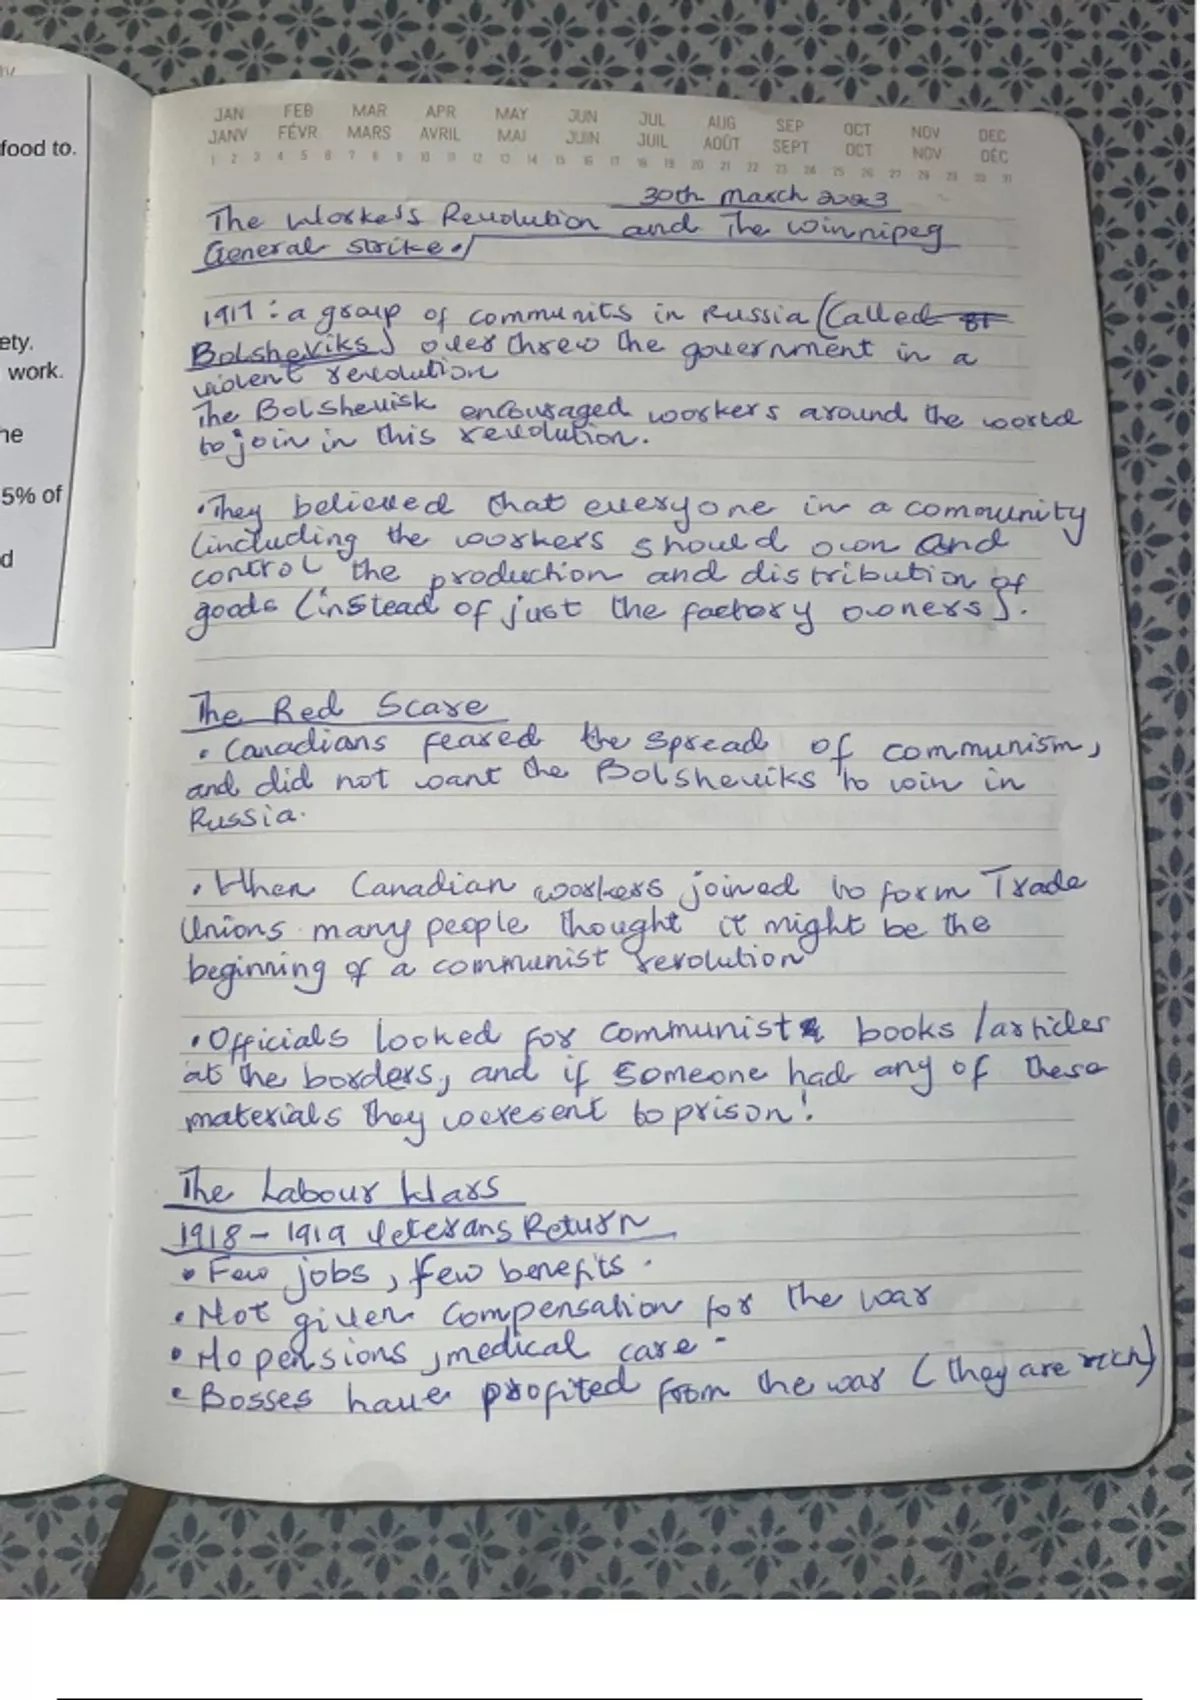 JAN FEB MAR APR MAY JUN JUL AUG SEP OCT NOV DEC
JANV FÉVR MARS AVRIL MAI JUIN JUIL AOÛT SEPT OCT NOV DÉC
1 2 3 4 5 6 7 8 9 10 11 12 13 14 15 16 17 18 19 20 21 22 23 24 25 26 27 28 29 30 31
food to.
ety.
work.
he
5% of
d
30th March 2023
The Worker's Revolution and The Winnipeg
General Strike.
1917 : a group of communits in Russia (Called
Bolsheviks) overthrew the government in a
violent revolution
The Bolshevisk encouraged workers around the world
to join in this revolution.
• They believed that everyone in a community
(including the workers should own and
control the production and distribution of
goods (instead of just the factory owners).
The Red Scare
• Canadians feared the spread of communism,
and did not want the Bolsheviks to win in
Russia.
• When Canadian workers joined to form Trade
Unions many people thought it might be the
beginning of a communist revolution
• Officials looked for communist books / articles
at the borders, and if someone had any of these
materials they were sent to prison!
The Labour Wars
1918 - 1919 Veterans Return
• Few jobs, few benefits.
• Not given compensation for the war
• No pensions, medical care -
• Bosses have profited from the war (they are rich)